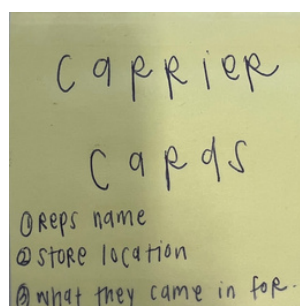 CARRIER
CARds
① Reps name
② store location
③ what they came in for.